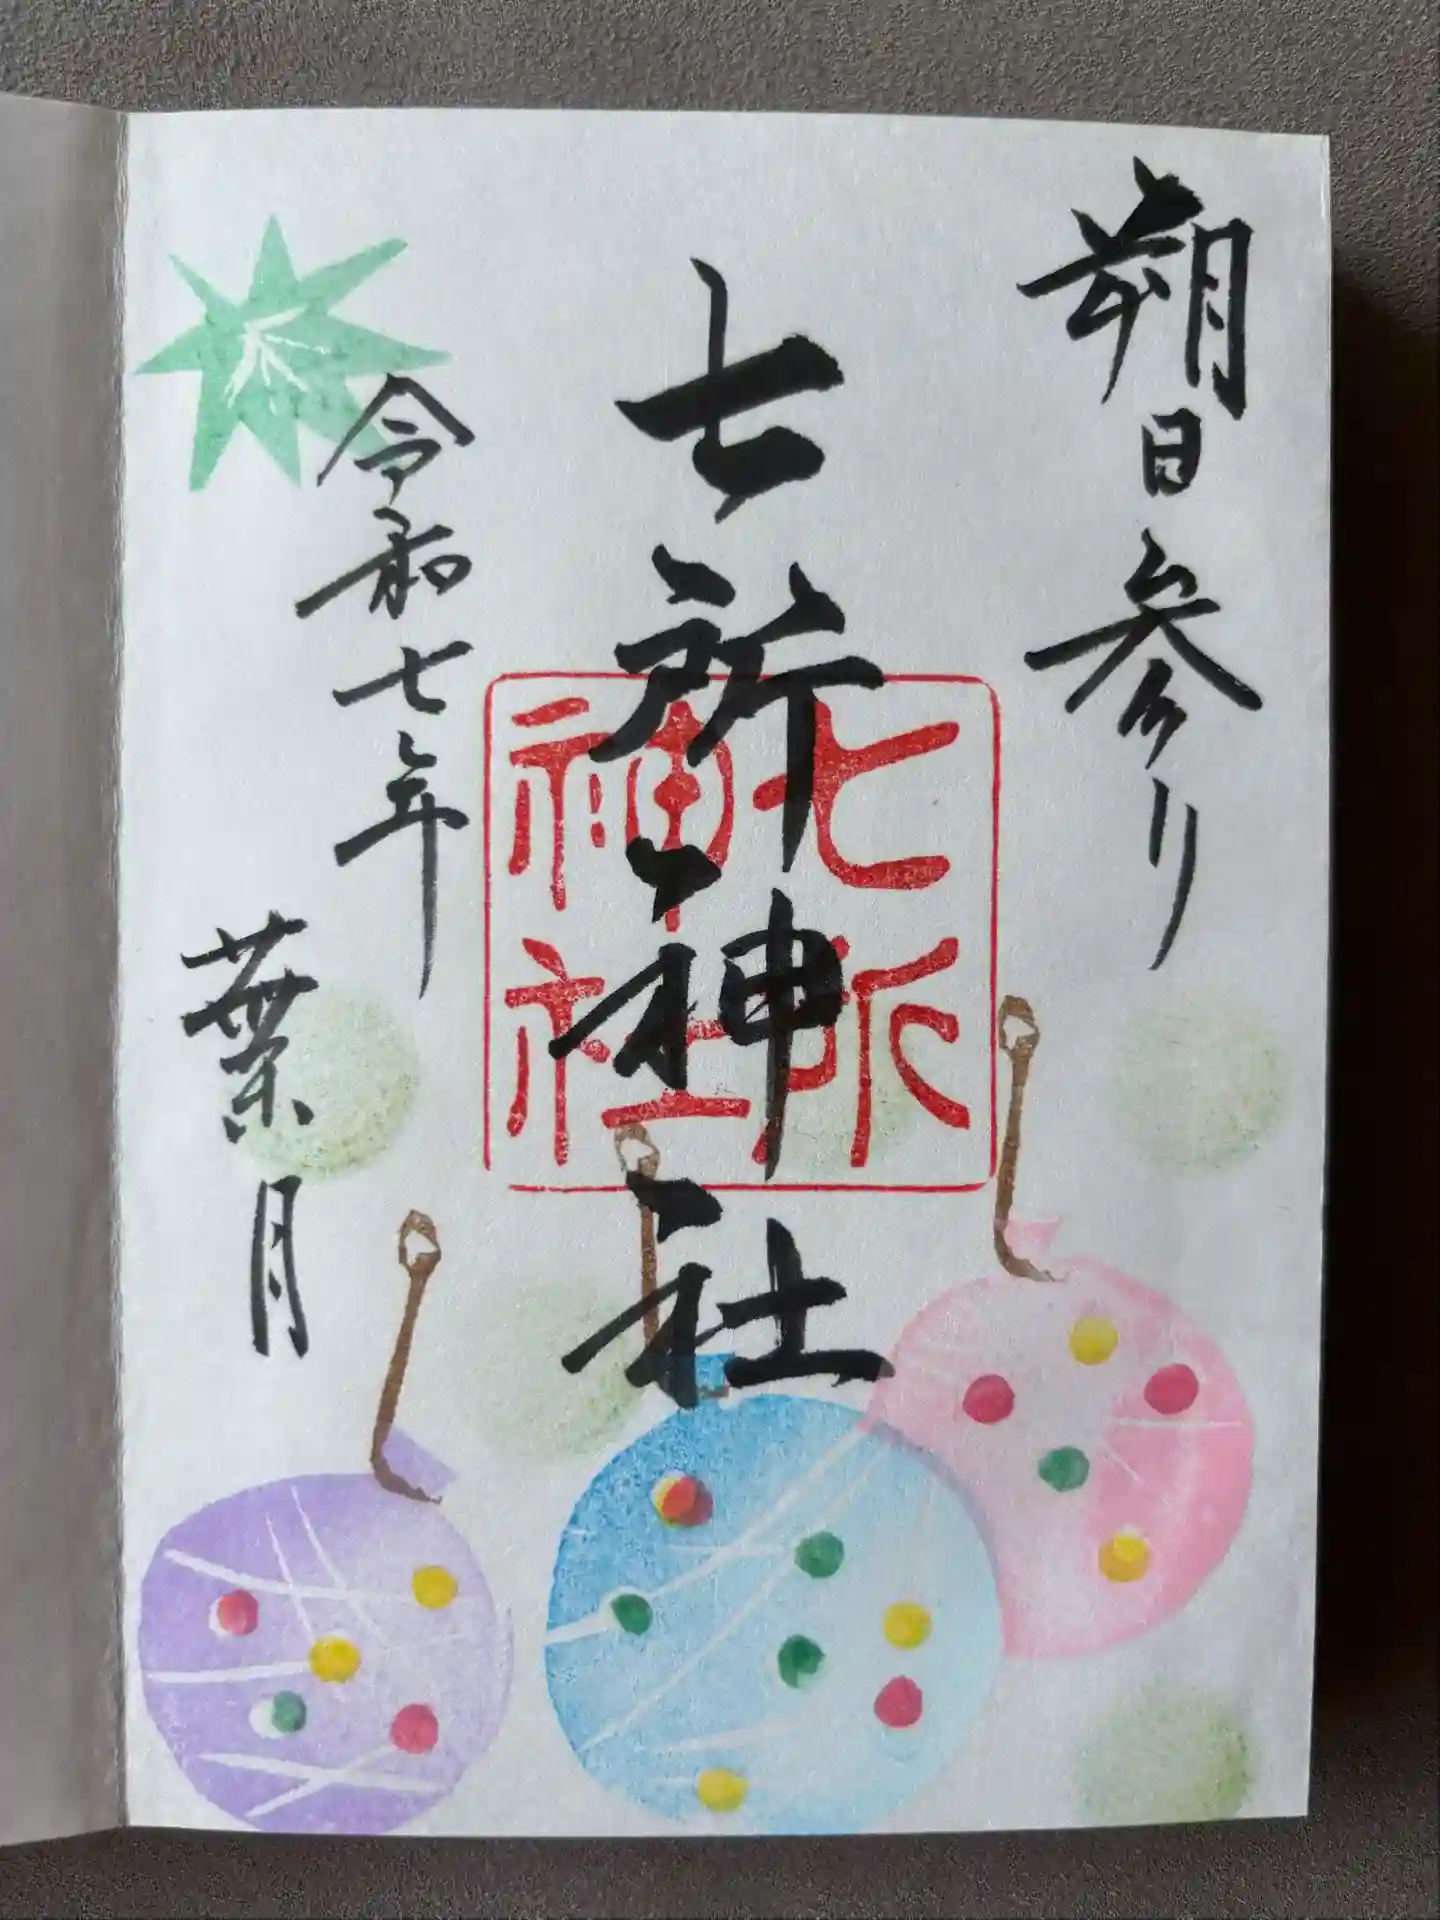 朔日参り
七所神社
七所神社
令和七年
葉月